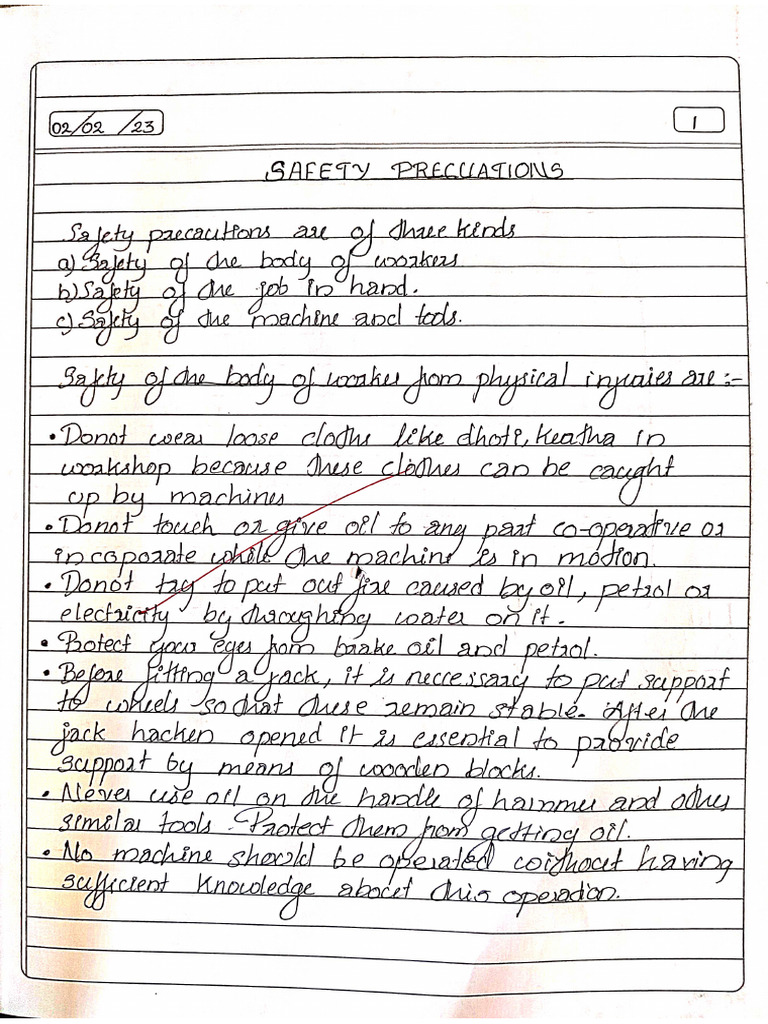 02/02/23
1
SAFETY PRECUATIONS
Safety precautions are of three kinds
a) Safety of the body of workers
b) Safety of the job in hand.
c) Safety of the machine and tools.
Safety of the body of worker from physical injuries are :-
• Donot wear loose cloths like dhoti, keatha in
workshop because these clothes can be caught
up by machines
• Donot touch or give oil to any part co-operative or
incoporate while the machine is in motion.
• Donot try to put out fire caused by oil, petrol or
electricity by throughing water on it.
• Protect your eyes from brake oil and petrol.
• Before fitting a jack, it is neccessary to put support
to wheels so that these remain stable. After the
jack hacken opened it is essential to provide
support by means of wooden blocks.
• Never use oil on the handle of hammer and other
similar tools. Protect them from getting oil.
• No machine should be operated without having
sufficient knowledge about this operation.